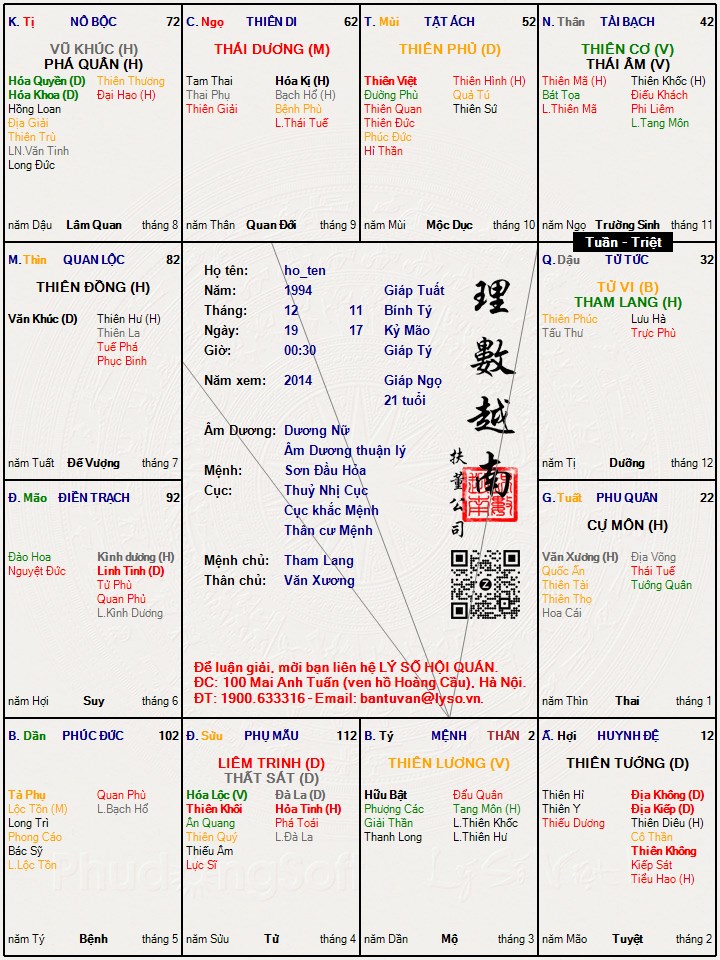 K. Tị NÔ BỘC 72
VŨ KHÚC (H)
PHÁ QUÂN (H)
Hóa Quyền (D) Thiên Thương
Hóa Khoa (D) Đại Hao (H)
Hồng Loan
Địa Giải
Thiên Trù
LN.Văn Tinh
Long Đức
năm Dậu Lâm Quan tháng 8
C. Ngọ THIÊN DI 62
THÁI DƯƠNG (M)
Tam Thai Hóa Kị (H)
Thai Phụ Bạch Hổ (H)
Thiên Giải Bệnh Phù
L.Thái Tuế
năm Thân Quan Đới tháng 9
T. Mùi TẬT ÁCH 52
THIÊN PHỦ (D)
Thiên Việt Thiên Hình (H)
Đường Phù Quả Tú
Thiên Quan Thiên Sứ
Thiên Đức
Phúc Đức
Hỉ Thần
năm Mùi Mộc Dục tháng 10
N. Thân TÀI BẠCH 42
THIÊN CƠ (V)
THÁI ÂM (V)
Thiên Mã (H) Thiên Khốc (H)
Bát Tọa Điếu Khách
L.Thiên Mã Phi Liêm
L.Tang Môn
năm Ngọ Trường Sinh tháng 11
Tuần - Triệt
M. Thìn QUAN LỘC 82
THIÊN ĐỒNG (H)
Văn Khúc (D) Thiên Hư (H)
Thiên La
Tuế Phá
Phục Binh
năm Tuất Đế Vượng tháng 7
Họ tên: ho_ten
Năm: 1994 Giáp Tuất
Tháng: 12 11 Bính Tý
Ngày: 19 17 Kỷ Mão
Giờ: 00:30 Giáp Tý
Năm xem: 2014 Giáp Ngọ
21 tuổi
Âm Dương: Dương Nữ
Âm Dương thuận lý
Mệnh: Sơn Đầu Hỏa
Cục: Thuỷ Nhị Cục
Cục khắc Mệnh
Thân cư Mệnh
Mệnh chủ: Tham Lang
Thân chủ: Văn Xương
理數越南
扶董公司
Z
Để luận giải, mời bạn liên hệ LÝ SỐ HỘI QUÁN.
ĐC: 100 Mai Anh Tuấn (ven hồ Hoàng Cầu), Hà Nội.
ĐT: 1900.633316 - Email: bantuvan@lyso.vn.
Q. Dậu TỬ TỨC 32
TỬ VI (B)
THAM LANG (H)
Thiên Phúc Lưu Hà
Tấu Thư Trực Phù
năm Tị Dưỡng tháng 12
Đ. Mão ĐIỀN TRẠCH 92
Đào Hoa Kình dương (H)
Nguyệt Đức Linh Tinh (D)
Tử Phù
Quan Phủ
L.Kình Dương
năm Hợi Suy tháng 6
G. Tuất PHU QUÂN 22
CỰ MÔN (H)
Văn Xương (H) Địa Võng
Quốc Ấn Thái Tuế
Thiên Tài Tướng Quân
Thiên Thọ
Hoa Cái
năm Thìn Thai tháng 1
B. Dần PHÚC ĐỨC 102
Tả Phụ Quan Phù
Lộc Tồn (M) L.Bạch Hổ
Long Trì
Phong Cáo
Bác Sỹ
L.Lộc Tồn
năm Tý Bệnh tháng 5
Đ. Sửu PHỤ MẪU 112
LIÊM TRINH (D)
THẤT SÁT (D)
Hóa Lộc (V) Đà La (D)
Thiên Khôi Hỏa Tinh (H)
Ân Quang Phá Toái
Thiên Quý L.Đà La
Thiếu Âm
Lực Sĩ
năm Sửu Tử tháng 4
B. Tý MỆNH THÂN 2
THIÊN LƯƠNG (V)
Hữu Bật Đẩu Quân
Phượng Các Tang Môn (H)
Giải Thần L.Thiên Khốc
Thanh Long L.Thiên Hư
năm Dần Mộ tháng 3
Ấ. Hợi HUYNH ĐỆ 12
THIÊN TƯỚNG (D)
Thiên Hỉ Địa Không (D)
Thiên Y Địa Kiếp (D)
Thiếu Dương Thiên Diêu (H)
Cô Thần
Thiên Không
Kiếp Sát
Tiểu Hao (H)
năm Mão Tuyệt tháng 2